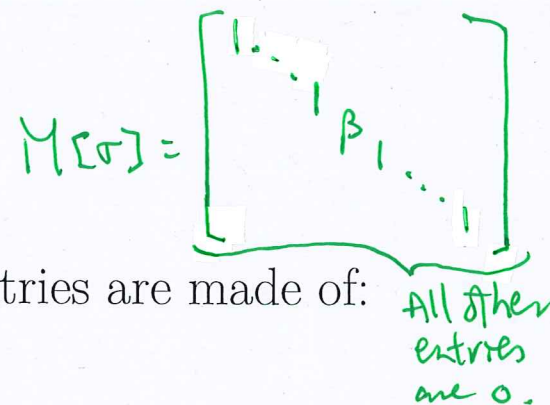 M[σ] = [ 1 ⋱ 1 β 1 ⋱ 1 ]
tries are made of:
All other
entries
are 0.